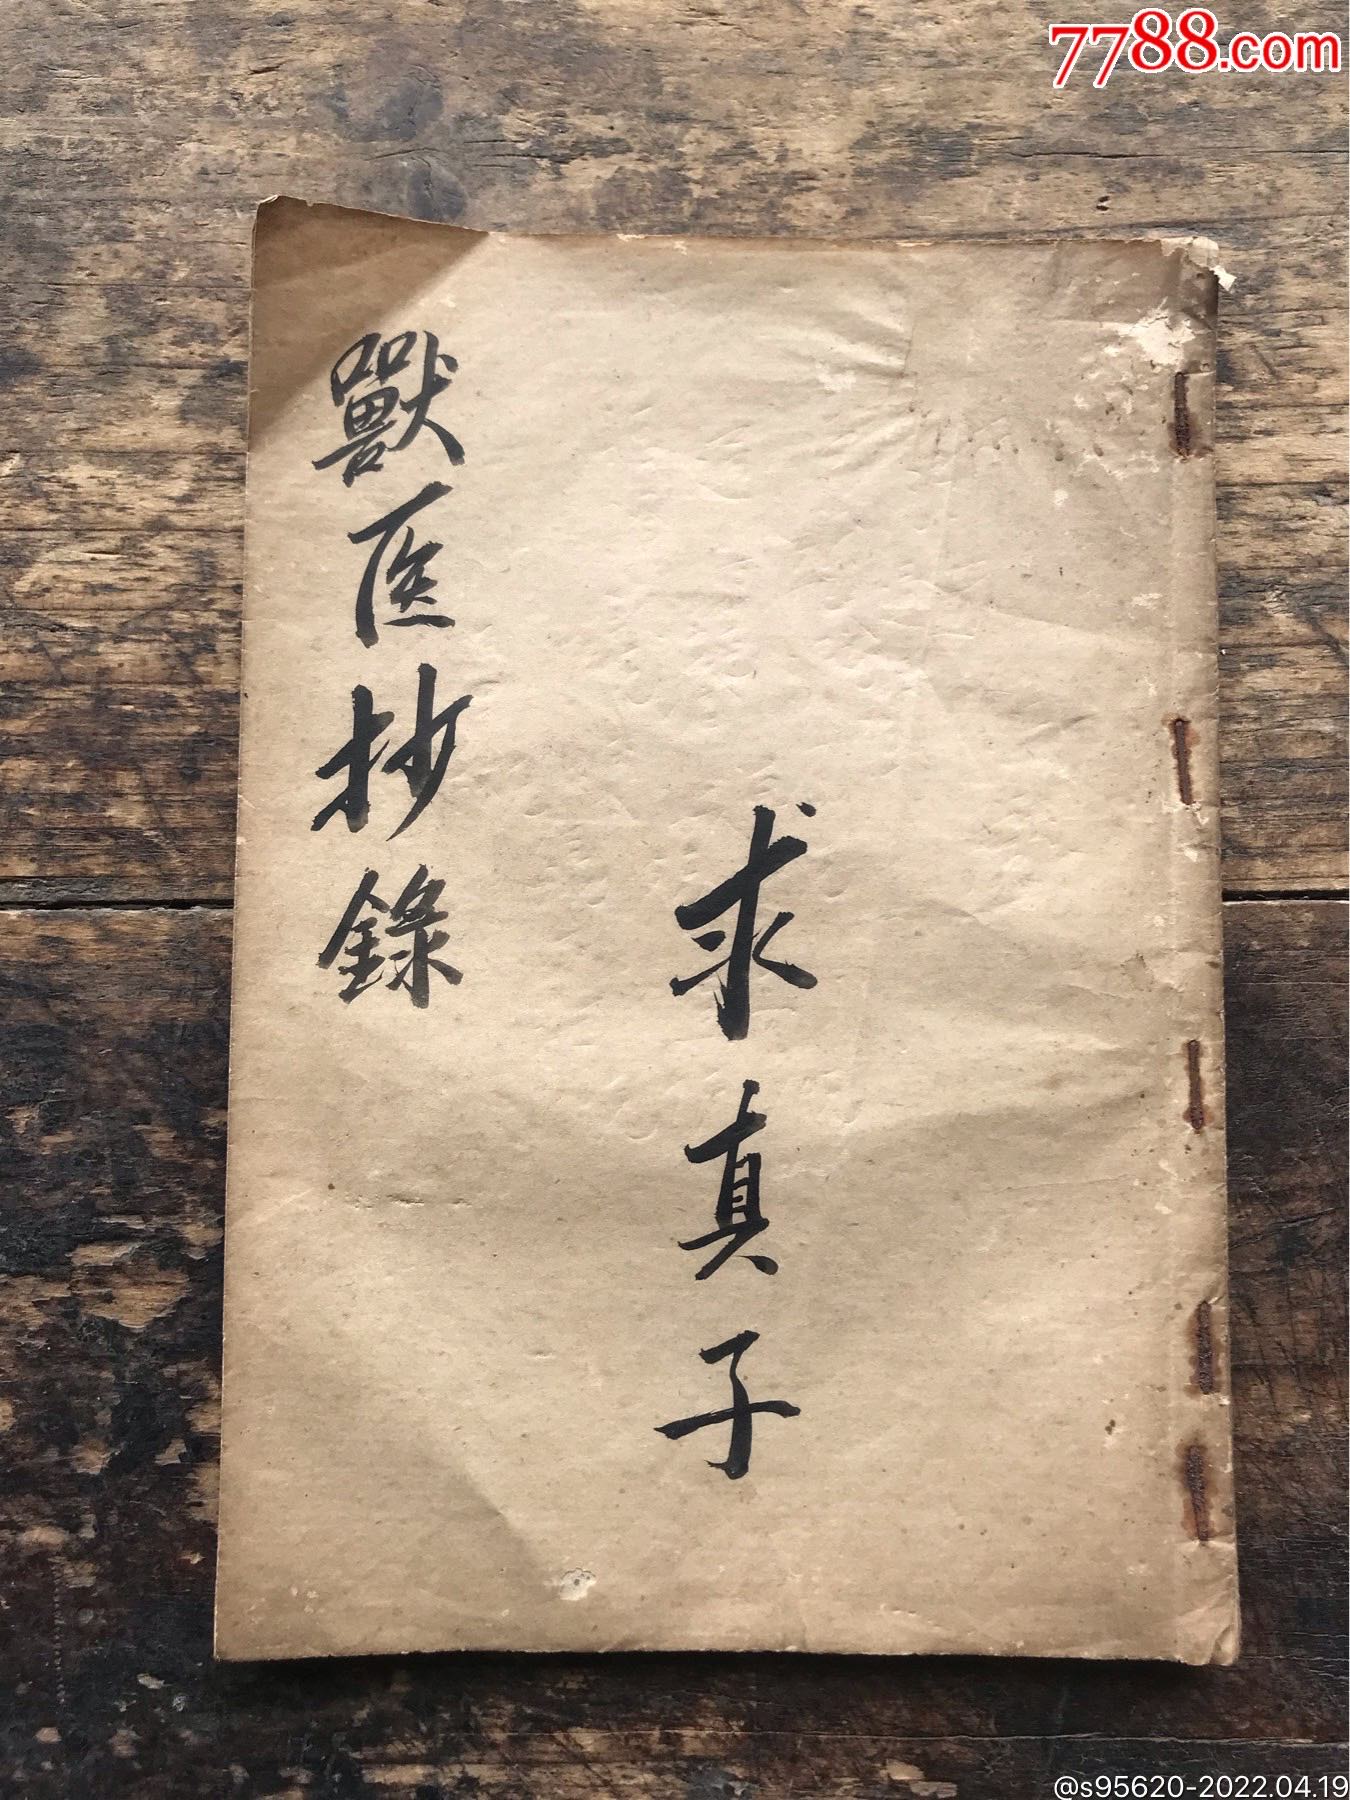 7788.com
獸医抄錄
求真子
@s95620-2022.04.19